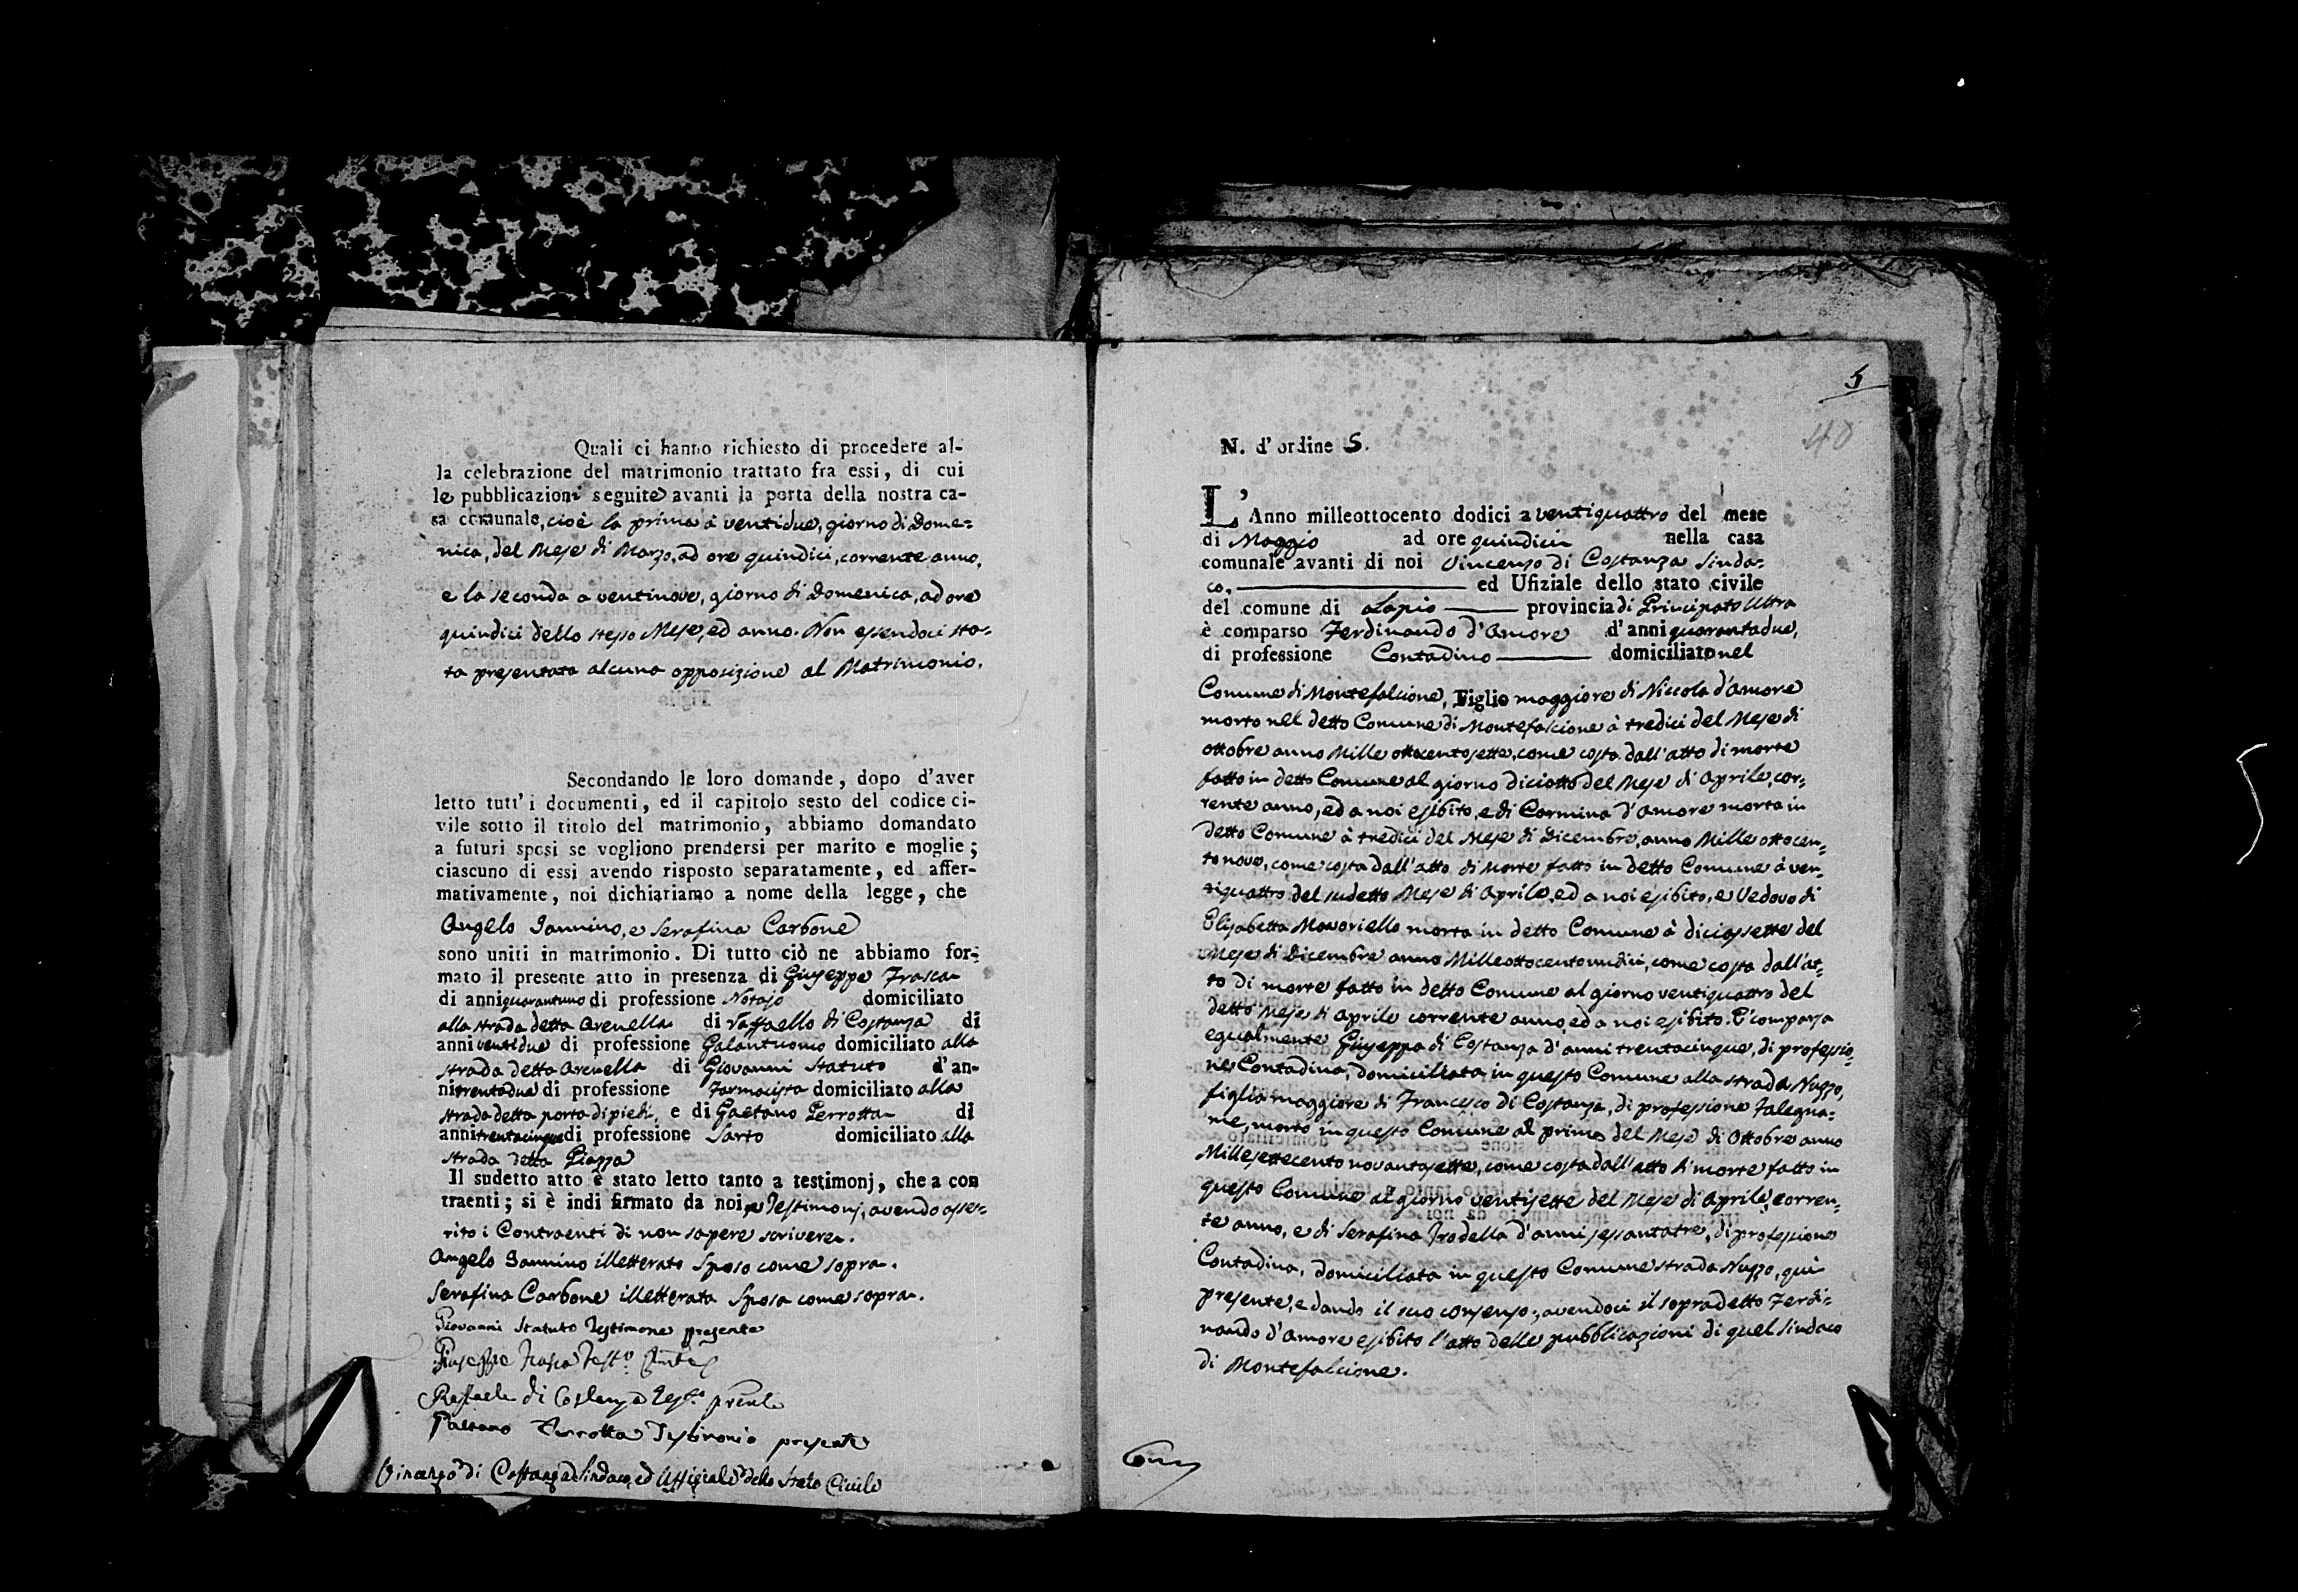 Quali ci hanno richiesto di procedere al-
la celebrazione del matrimonio trattato fra essi, di cui
le pubblicazioni seguite avanti la porta della nostra ca-
sa comunale, cioè la prima à ventidue, giorno di Dome=
nica, del Mese di Marzo, ad ore quindici, corrente anno,
e la seconda a ventinove, giorno di Domenica, ad ore
quindici dello stesso Mese, ed anno. Non essendoci sta-
ta presentata alcuna opposizione al Matrimonio.
Secondando le loro domande, dopo d'aver
letto tutt' i documenti, ed il capitolo sesto del codice ci-
vile sotto il titolo del matrimonio, abbiamo domandato
a futuri sposi se vogliono prendersi per marito e moglie;
ciascuno di essi avendo risposto separatamente, ed affer-
mativamente, noi dichiariamo a nome della legge, che
Angelo Iannino, e Serafina Carbone
sono uniti in matrimonio. Di tutto ciò ne abbiamo for-
mato il presente atto in presenza di Giuseppe Frasca
di anni quarantuno di professione Notajo domiciliato
alla strada detta Arenella di Raffaello di Costanza di
anni ventidue di professione Galantuomo domiciliato alla
strada detta Arenella di Giovanni Statuto d'an-
ni trentadue di professione Farmacista domiciliato alla
strada detta porta di piedi, e di Gaetano Perrotta di
anni trentacinque di professione Sarto domiciliato alla
strada detta Piazza
Il sudetto atto è stato letto tanto a testimonj, che a con
traenti; si è indi firmato da noi, e Testimonj, avendo asse-
rito i Contraenti di non sapere scrivere.
Angelo Iannino illetterato Sposo come sopra.
Serafina Carbone illetterata Sposa come sopra.
Giovanni Statuto Testimone presente
Giuseppe Frasca Test.o
Raffaele di Costanza Test.e p̃nte
Gaetano Perrotta Testimonio presente
Vincenzo di Costanza Sindaco, ed Uffiziale dello Stato Civile
5
40
N. d' ordine 5.
L' Anno milleottocento dodici a ventiquattro del mese
di Maggio ad ore quindici nella casa
comunale avanti di noi Vincenzo di Costanza Sinda-
co, ed Ufiziale dello stato civile
del comune di Lapio provincia di Principato Ultra
è comparso Ferdinando d'Amore d'anni quarantadue,
di professione Contadino domiciliato nel
Comune di Montefalcione, Figlio maggiore di Niccola d'Amore
morto nel detto Comune di Montefalcione à tredici del Mese di
ottobre anno Mille ottocentosette, come costa dall'atto di morte
fatto in detto Comune al giorno diciotto del Mese di Aprile, cor-
rente anno, ed a noi esibito, e di Carmina d'Amore morta in
detto Comune à tredici del Mese di Dicembre, anno Mille ottocen-
to nove, come costa dall'atto di morte fatto in detto Comune à ven-
tiquattro del sudetto Mese di Aprile, ed a noi esibito, e Vedovo di
Elisabetta Monoriello morta in detto Comune à diciassette del
Mese di Dicembre anno Milleottocentoundici, come costa dall'at-
to di morte fatto in detto Comune al giorno ventiquattro del
detto Mese di Aprile corrente anno, ed a noi esibito. E' comparsa
egualmente Giuseppa di Costanza d'anni trentacinque, di professio-
ne Contadina, domiciliata in questo Comune alla strada Nuzzo,
figlia maggiore di Francesco di Costanza, di professione Falegna-
me, morto in questo Comune al primo del Mese di Ottobre anno
Millesettecento novantasette, come costa dall'atto di morte fatto in
questo Comune al giorno ventisette del Mese di Aprile, corren-
te anno, e di Serafina Iradella d'anni sessantatre, di professione
Contadina, domiciliata in questo Comune strada Nuzzo, quì
presente, e dando il suo consenso; avendoci il sopradetto Ferdi-
nando d'Amore esibito l'atto delle pubblicazioni di quel Sindaco
di Montefalcione.